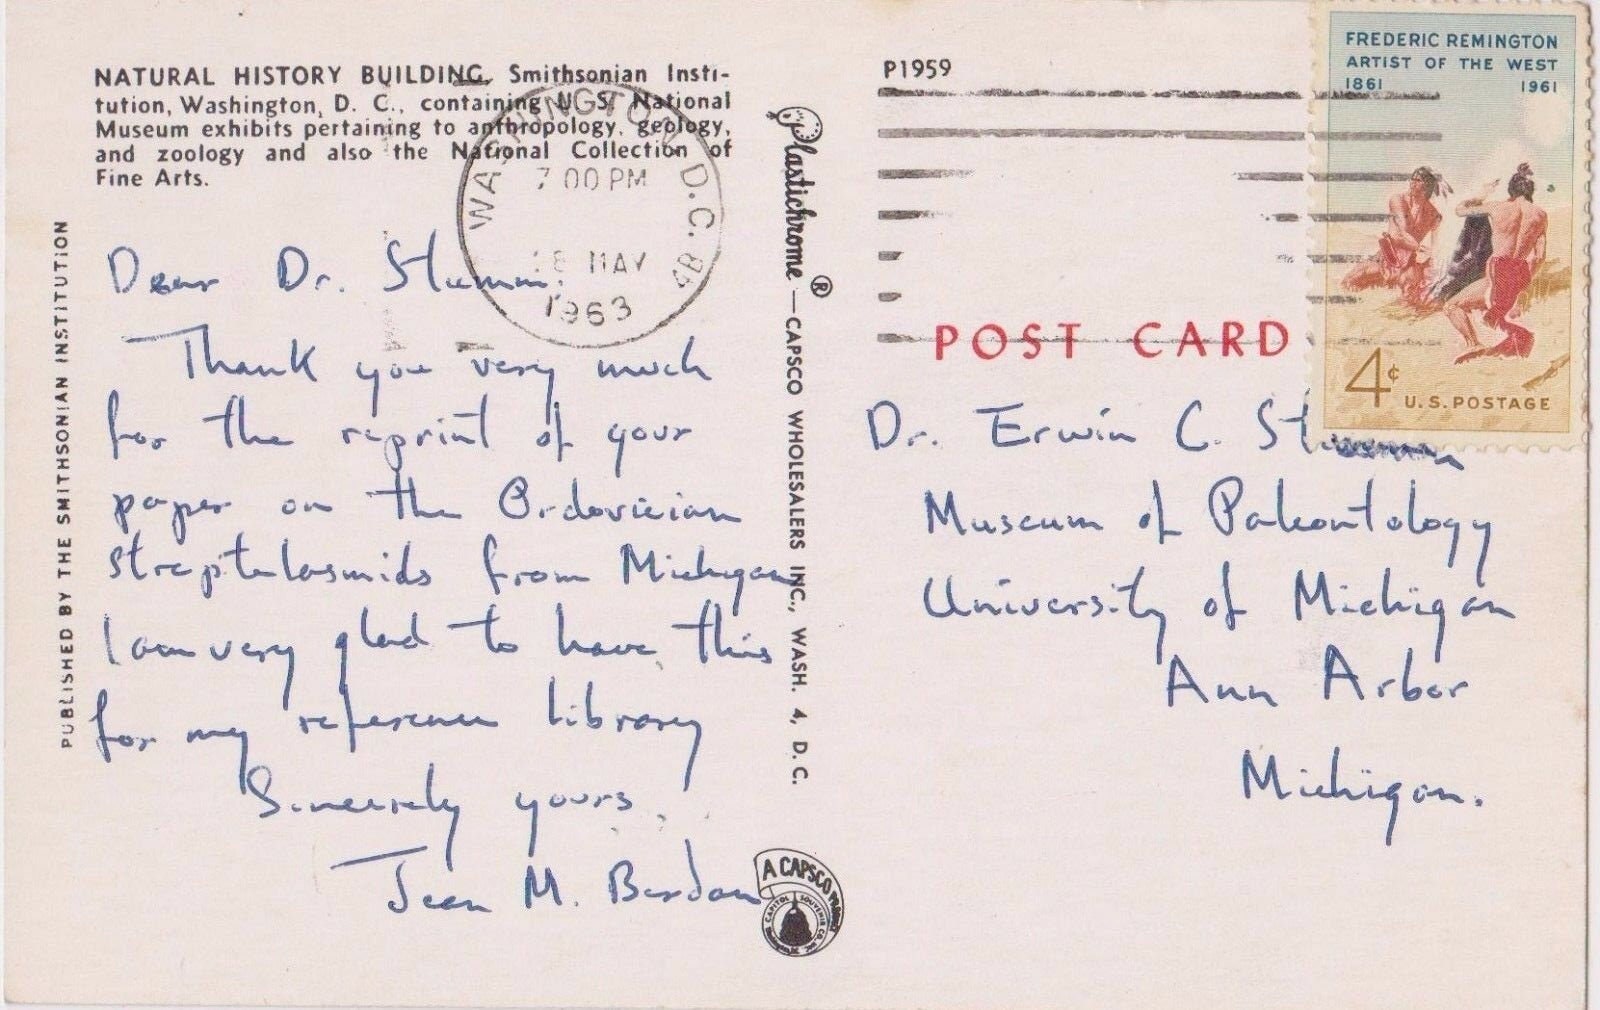 NATURAL HISTORY BUILDING, Smithsonian Insti-
tution, Washington, D. C., containing U. S. National
Museum exhibits pertaining to anthropology, geology,
and zoology and also the National Collection of
Fine Arts.
PUBLISHED BY THE SMITHSONIAN INSTITUTION
WASHINGTON D.C. 4B
7 00 PM
MAY
1963
Dear Dr. Stumm:
Thank you very much
for the reprint of your
paper on the Ordovician
streptelasmids from Michigan
I am very glad to have this
for my reference library
Sincerely yours,
Jean M. Berdan
Plastichrome ® —CAPSCO WHOLESALERS INC., WASH. 4, D. C.
A CAPSCO
CAPITOL SOUVENIR CO. INC.
P1959
POST CARD
FREDERIC REMINGTON
ARTIST OF THE WEST
1861 1961
4¢
U.S. POSTAGE
Dr. Erwin C. Stumm
Museum of Paleontology
University of Michigan
Ann Arbor
Michigan.